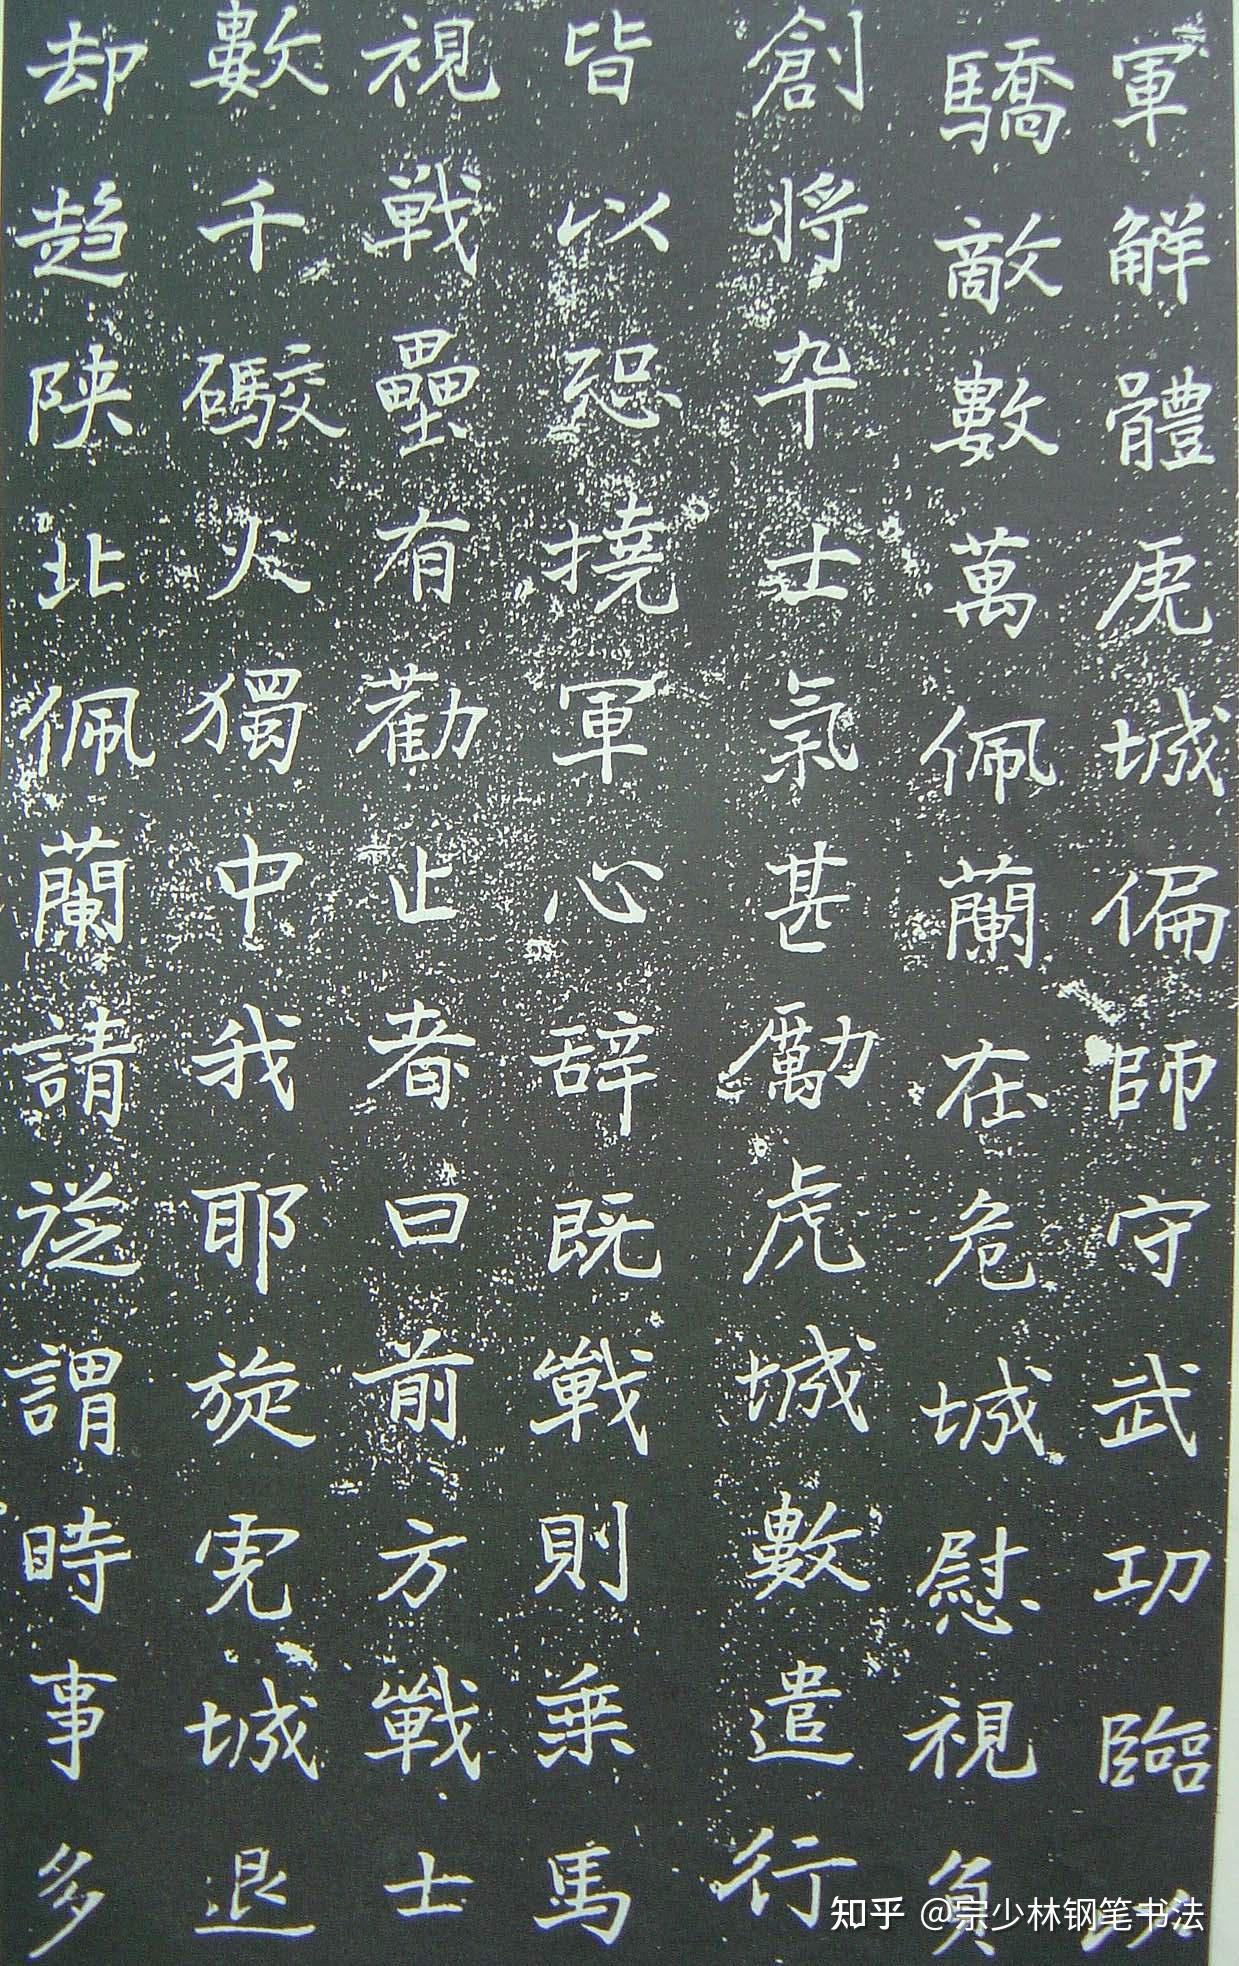 軍解體虎城偏師守武功臨以
驕敵數萬佩蘭在危城慰視負
創將卒士氣甚勵虎城數遣行
皆以恐撓軍心辞既戰則乗馬
視戦壘有勸止者曰前方戰士
數千礮火獨中我耶旋虎城退
却趋陝北佩蘭請从謂時事多
知乎 @宗少林钢笔书法